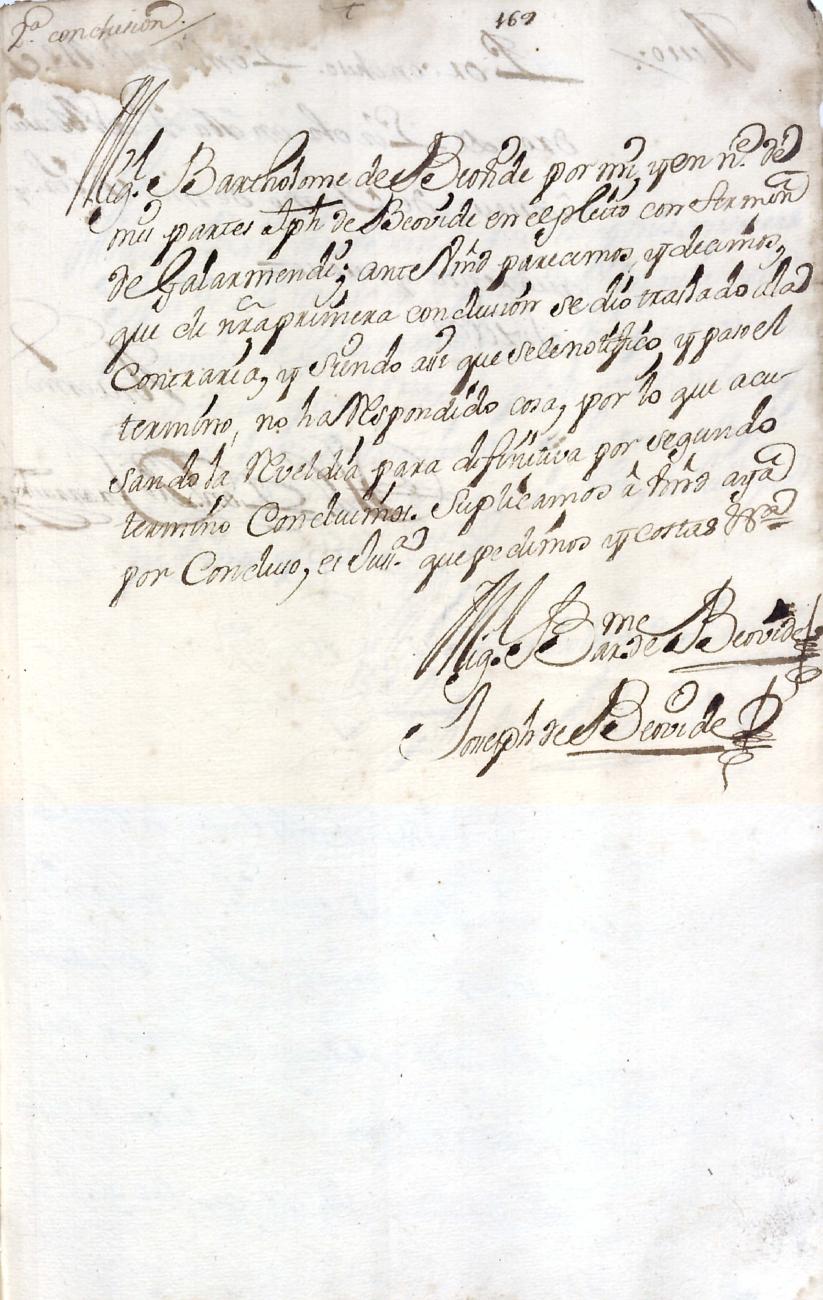 2.ª conclusion.
169
Mig.l Bartholome de Beovide por mi, y en n.e de
mis partes Jph de Beovide en el pleito con Fermin
de Galarmendi; ante Vmd parecemos, y decimos,
que de nr̃a primera conclusion se dio traslado a la
Contraria, y siendo assi que se le notifico, y paso el
termino, no ha Respondido cosa, por lo que acu-
sando la Rveldia para difinitiva por segundo
termino Concluimos. Suplicamos a Vmd aya
por Concluso, es Just.ª que pedimos y costas &ª
Mig.l Bar.me de Beovide
Joseph de Beovide